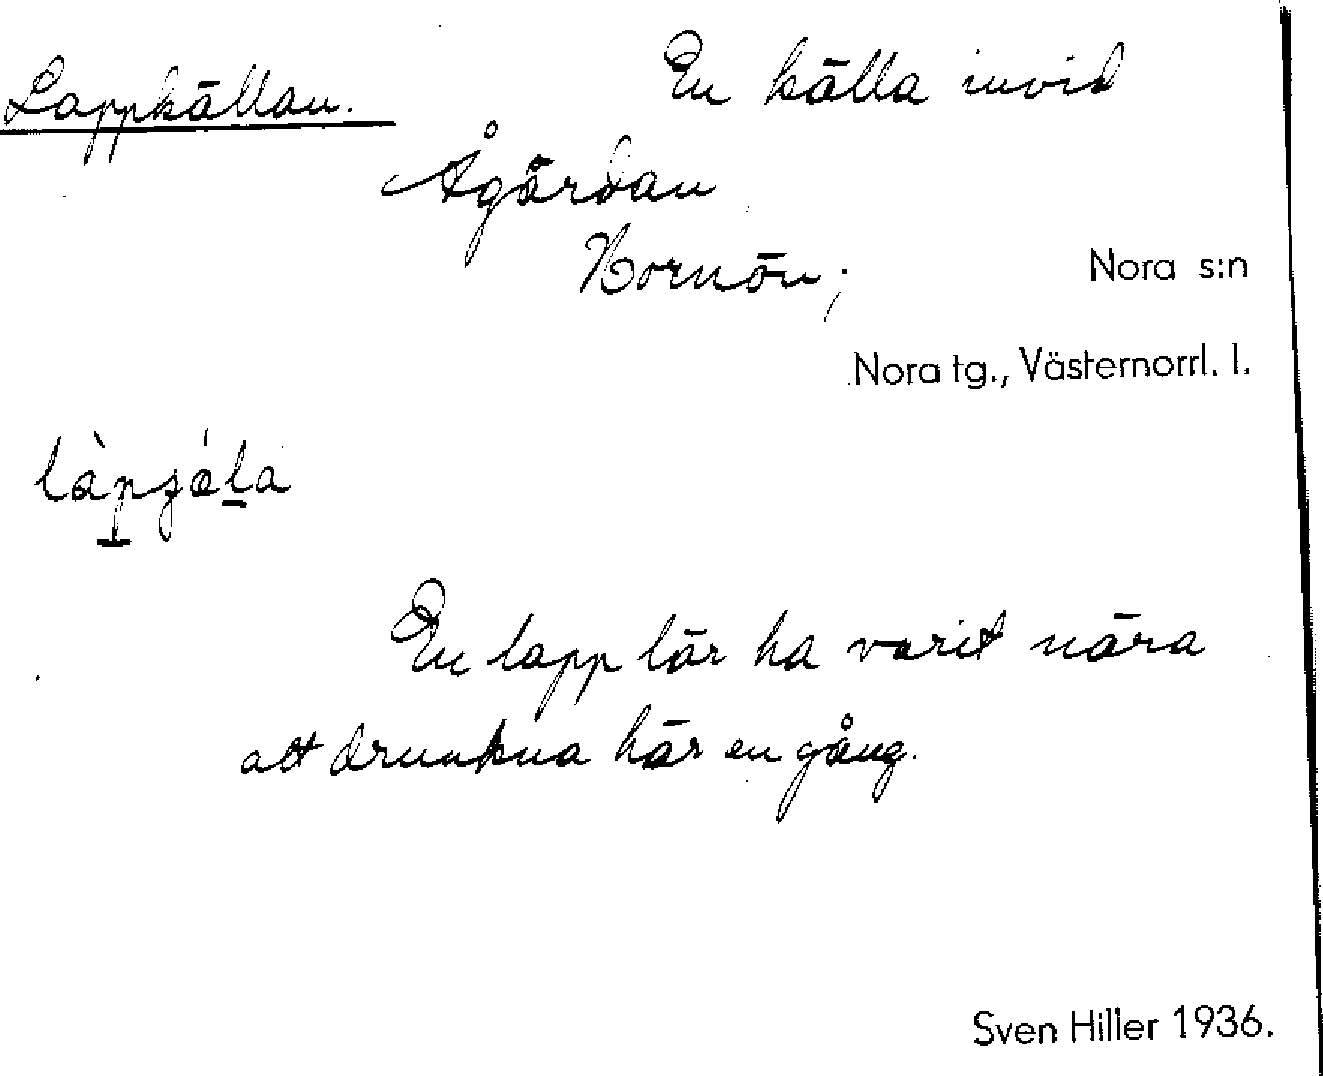 Lappkällan. En källa invid
Ågärdan
Hornön; Nora s:n
Nora tg., Västernorrl. l.
En lapp lär ha varit nära
att drunkna här en gång.
Sven Hiller 1936.